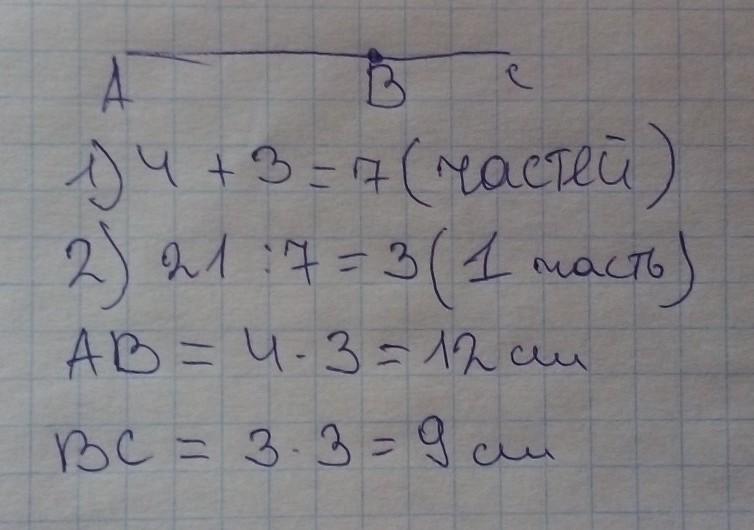 A B C
1) 4 + 3 = 7 (частей)
2) 21 : 7 = 3 (1 часть)
AB = 4 · 3 = 12 см
BC = 3 · 3 = 9 см